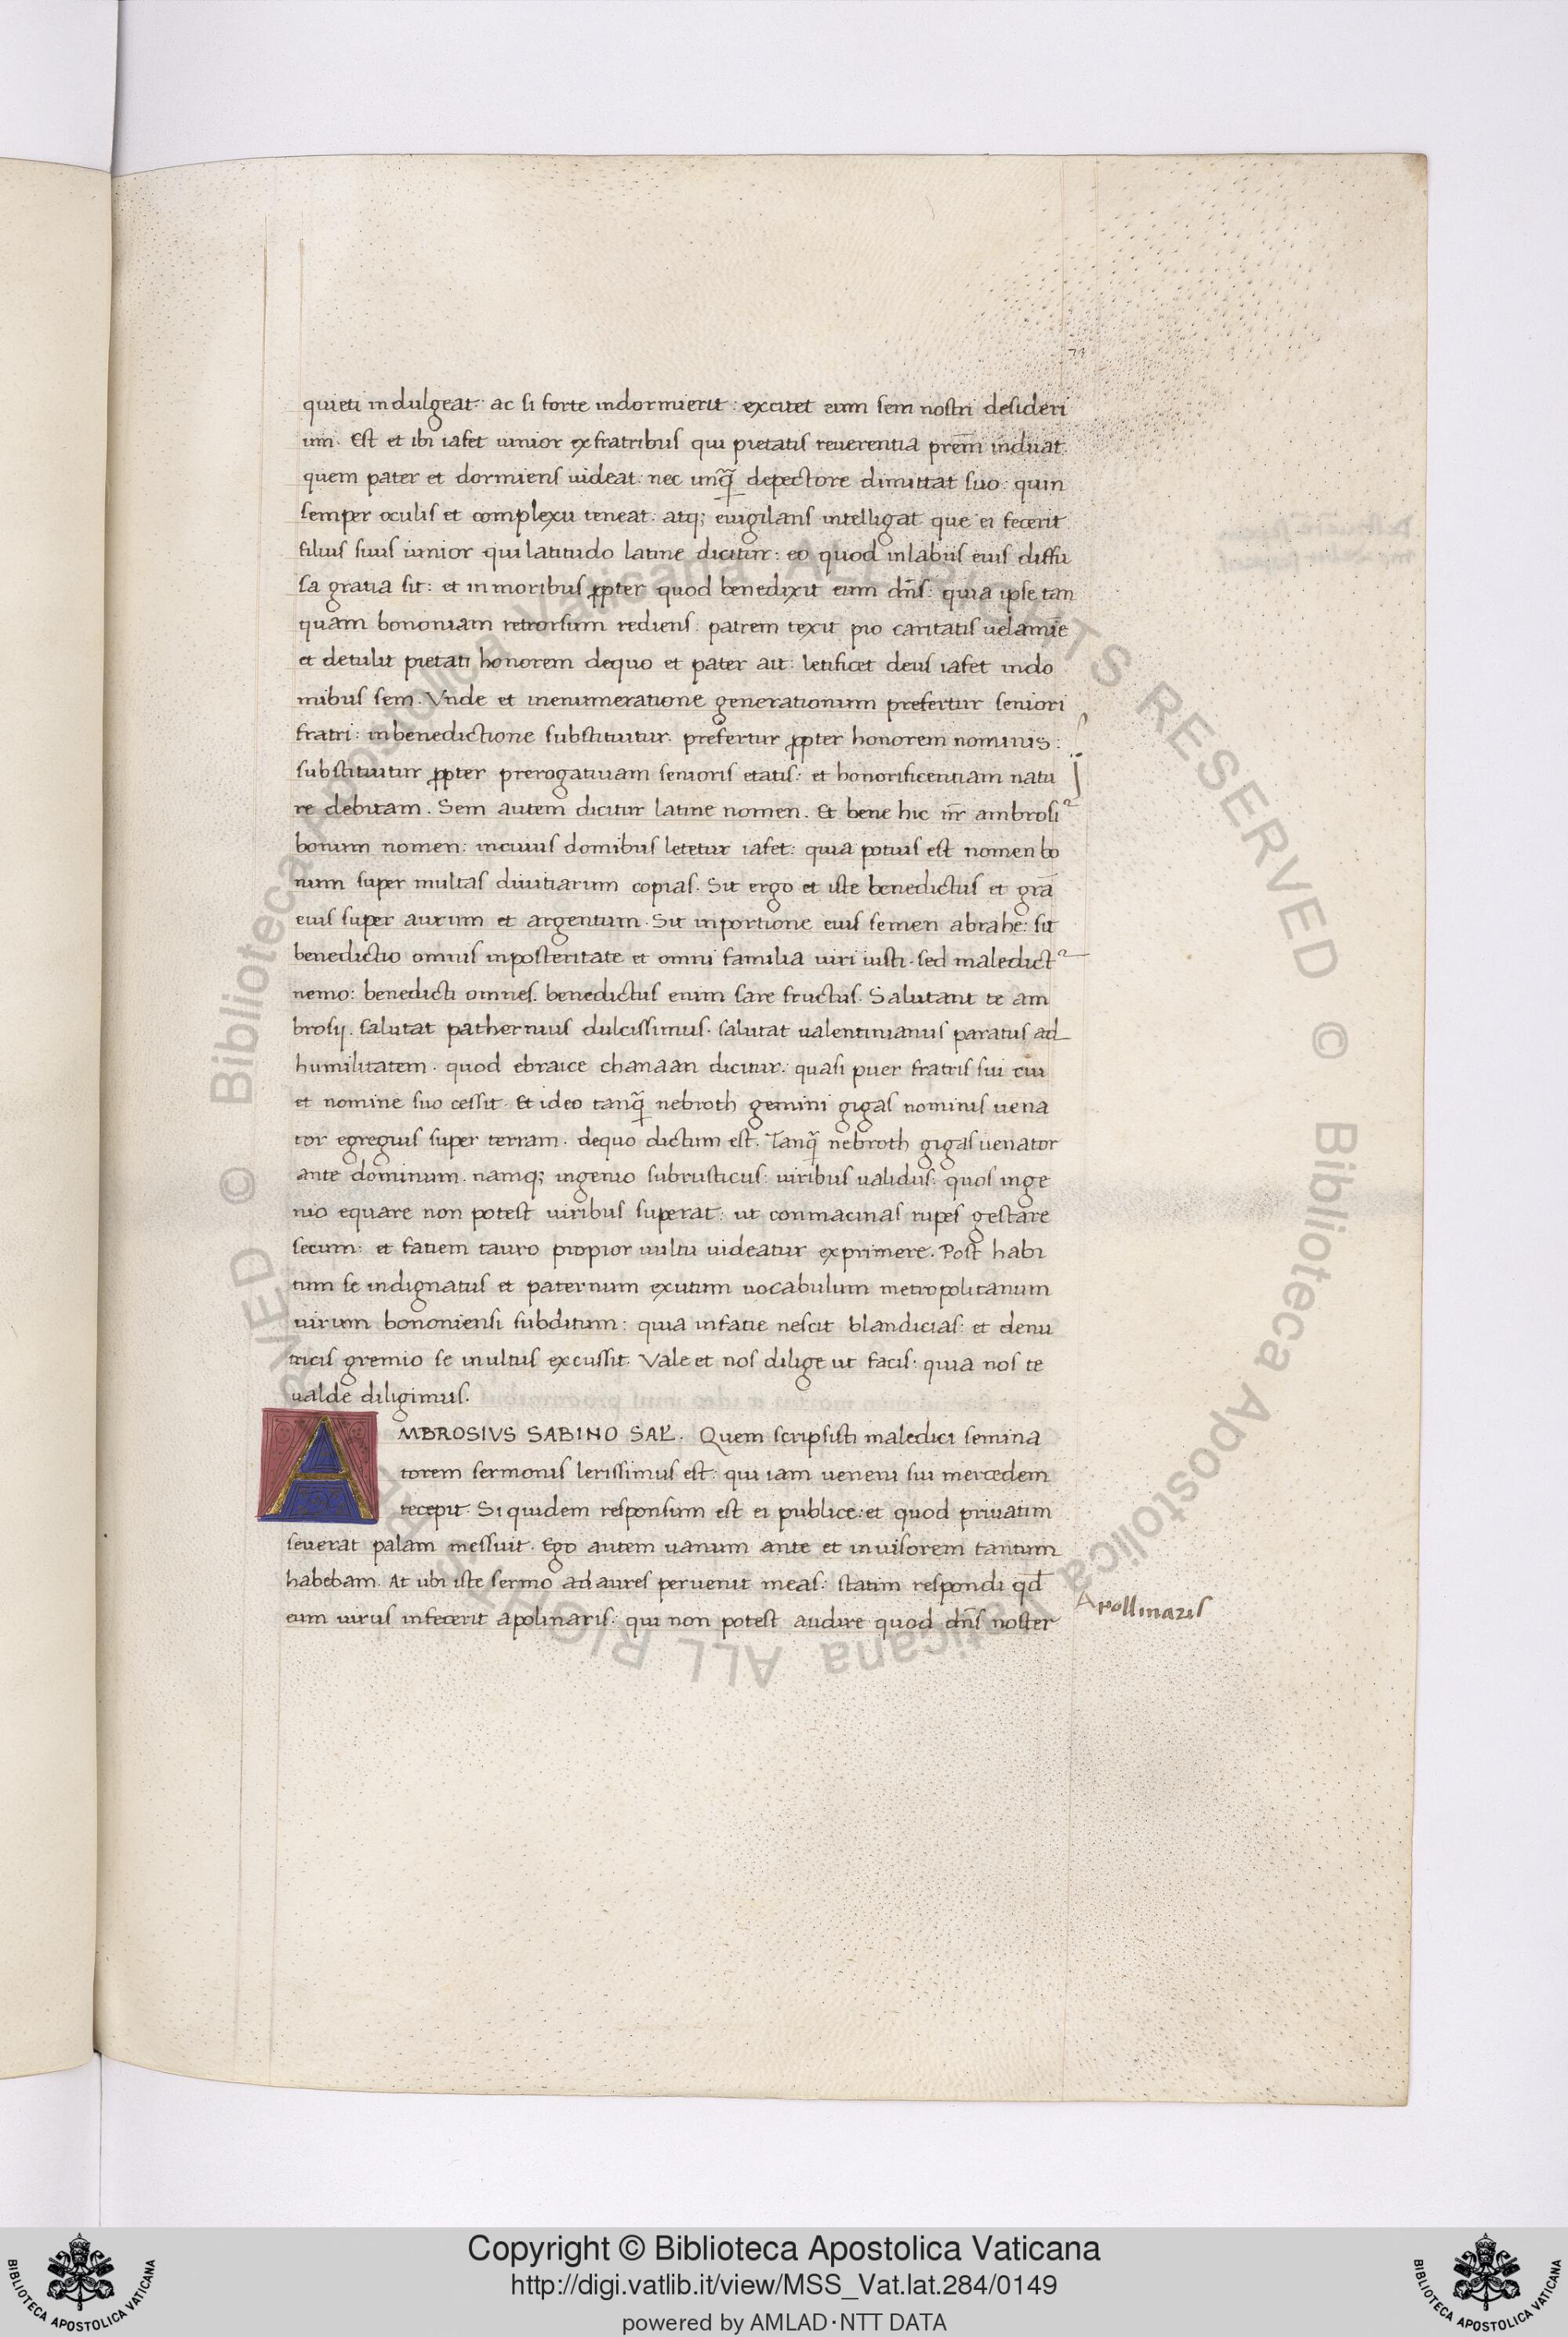 73
quieti indulgeat: ac si forte indormierit: excitet eum sem nostri desideri
um. Est et ibi iafet iunior ex fratribus qui pietatis reuerentia prem̅ induat.
quem pater et dormiens uideat: nec unq̃ depectore dimittat suo: quin
semper oculis et complexu teneat. atq; euigilans intelligat que ei fecerit
filius suus iunior qui latitudo latine dicitur: eo quod inlabiis eius diffu
sa gratia sit: et in moribus ꝓpter quod benedixit eum dn̅s: quia ipse tan
quam bononiam retrorsum rediens. patrem texit pio caritatis uelamie
et detulit pietati honorem dequo et pater ait: letificet deus iafet indo
mibus sem. Vnde et inenumeratione generationum prefertur seniori
fratri: inbenedictione substituitur. prefertur ꝓpter honorem nominis:
substituitur ꝓpter prerogatiuam senioris etatis: et honorificentiam natu
re debitam. Sem autem dicitur latine nomen. Et bene hic nr̅ ambrosi²
bonum nomen: incuius domibus letetur iafet: quia potius est nomen bo
num super multas diuitiarum copias. Sit ergo et iste benedictus et gra̅
eius super aurum et argentum. Sit inportione eius semen abrahe: sit
benedictio omnis inposteritate et omni familia uiri iusti. sed maledict²
nemo: benedicti omnes. benedictus enim sare fructus. Salutant te am
brosij. salutat pathernius dulcissimus. salutat ualentinianus paratus ad
humilitatem. quod ebraice chanaan dicitur: quasi puer fratris sui cui
et nomine suo cessit. Et ideo tanq̃ nebroth gemini gigas nominis uena
tor egregius super terram. dequo dictum est. Tanq̃ nebroth gigas uenator
ante dominum. namq; ingenio subrusticus: uiribus ualidus: quos inge
nio equare non potest uiribus superat: ut conmacinas rupes gestare
secum: et fatiem tauro propior uultu uideatur exprimere. Post habi
tum se indignatus et paternum exutum uocabulum metropolitanum
uirum bononiensi subditum: quia infatie nescit blandicias: et denu
tricis gremio se inultus excussit. Vale et nos dilige ut facis: quia nos te
ualde diligimus.
AMBROSIVS SABINO SAL̅. Quem scripsisti maledici semina
torem sermonis lerissimus est: qui iam ueneni sui mercedem
recepit. Si quidem responsum est ei publice: et quod priuatim
seuerat palam messuit. Ego autem uanum ante et inuisorem tantum
habebam. At ubi iste sermo ad aures peruenit meas: statim respondi qd̅
eum uirus infecerit apolinaris: qui non potest audire quod dn̅s noster
Apollinaris
Copyright © Biblioteca Apostolica Vaticana
http://digi.vatlib.it/view/MSS_Vat.lat.284/0149
powered by AMLAD·NTT DATA
BIBLIOTECA APOSTOLICA VATICANA
BIBLIOTECA APOSTOLICA VATICANA
© Biblioteca Apostolica Vaticana ALL RIGHTS RESERVED © Biblioteca Apostolica Vaticana ALL RIGHTS RESERVED